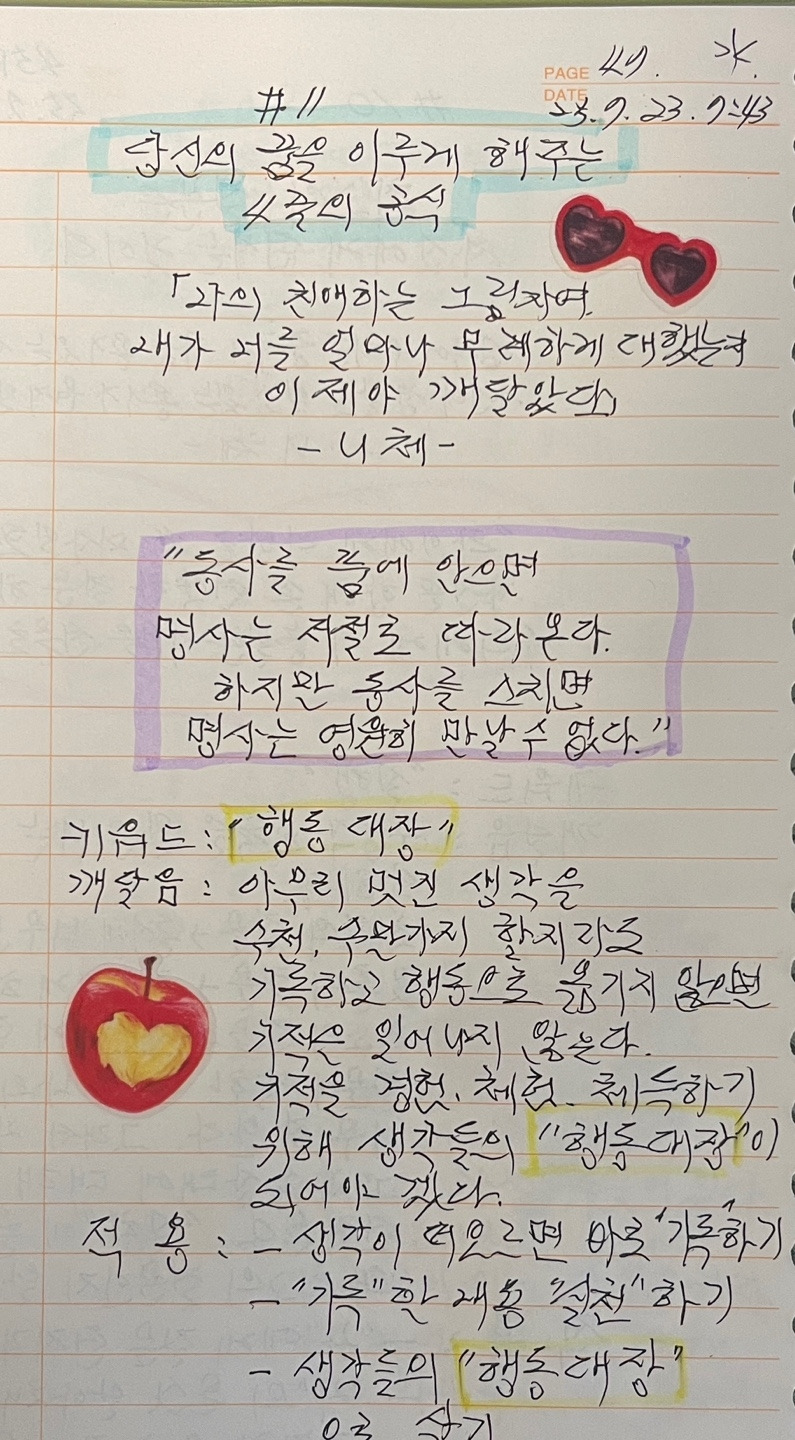 PAGE 49. 水.
DATE 23.9.23. 9:43
#11
당신의 꿈을 이루게 해주는
4줄의 공식
「나의 친애하는 그림자여.
내가 너를 얼마나 무례하게 대했는지
이제야 깨달았다」
- 니체 -
"동사를 품에 안으면
명사는 저절로 따라온다.
하지만 동사를 스치면
명사는 영원히 만날 수 없다."
키워드 : "행동 대장"
깨달음 : 아무리 멋진 생각을
수천, 수만가지 할지라도
기록하고 행동으로 옮기지 않으면
기적은 일어나지 않는다.
기적을 경험, 체험, 체득하기
위해 생각들의 "행동대장"이
되어야 겠다.
적 용 : - 생각이 떠오르면 바로 "기록"하기
- "기록"한 내용 "실천"하기
- 생각들의 "행동대장"
으로 살기